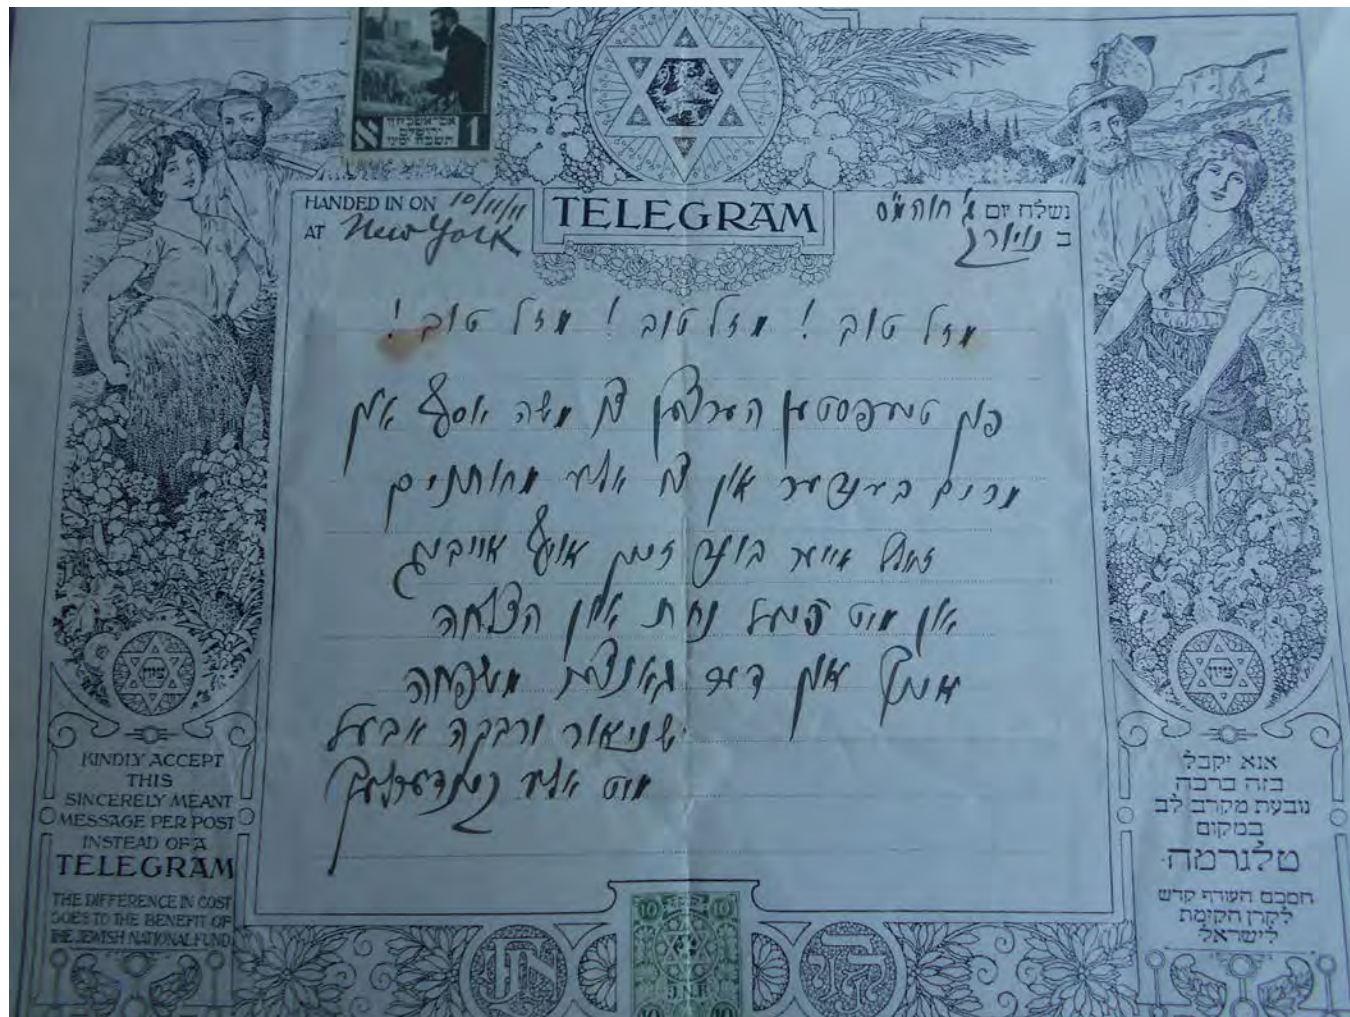 1
ירושלים
HANDED IN ON 10/11/11
AT New York
TELEGRAM
נשלח יום ג' חוהמ"ס
ב נויורק
מזל טוב ! מזל טוב ! מזל טוב !
פון טיעפסטען הערצען צו משה אסף און
מרים בענדער און צו אלע מחותנים
זאל אייער בונד זיין אויף אייביג
און מיט פיעל נחת און הצלחה
אייך און דיא גאנצע משפחה
שניאור ורבקה אבעל
מיט אלע קינדערליך
ציון
ציון
KINDLY ACCEPT
THIS
SINCERELY MEANT
MESSAGE PER POST
INSTEAD OF A
TELEGRAM
THE DIFFERENCE IN COST
GOES TO THE BENEFIT OF
THE JEWISH NATIONAL FUND
אנא יקבל
בזה ברכה
נובעת מקרב לב
במקום
טלגרמה
הסכם העודף קדש
לקרן הקימת
לישראל
10 10
J.N.F.
10 10